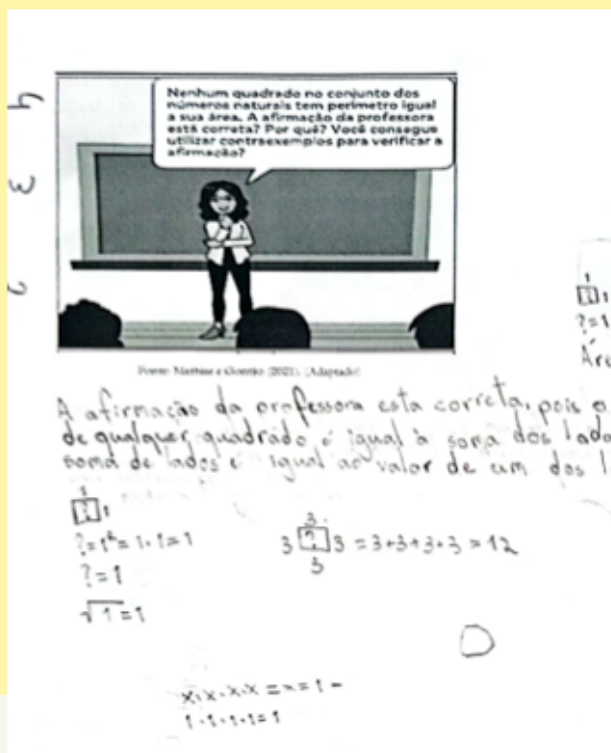 Nenhum quadrado no conjunto dos
números naturais tem perímetro igual
a sua área. A afirmação da professora
está correta? Por quê? Você consegue
utilizar contraexemplos para verificar a
afirmação?
4
3
2
Fonte: (2021). (Adaptado)
A afirmação da professora esta correta, pois o
de qualquer quadrado é igual à soma dos lado
soma de lados é igual ao valor de um dos l
1
? 1
?=1
Áre
1
? 1
?=1²=1·1=1
?=1
√1=1
3
3 ? 3 =3+3+3+3=12
3
x·x·x·x=x=1-
1·1·1·1=1